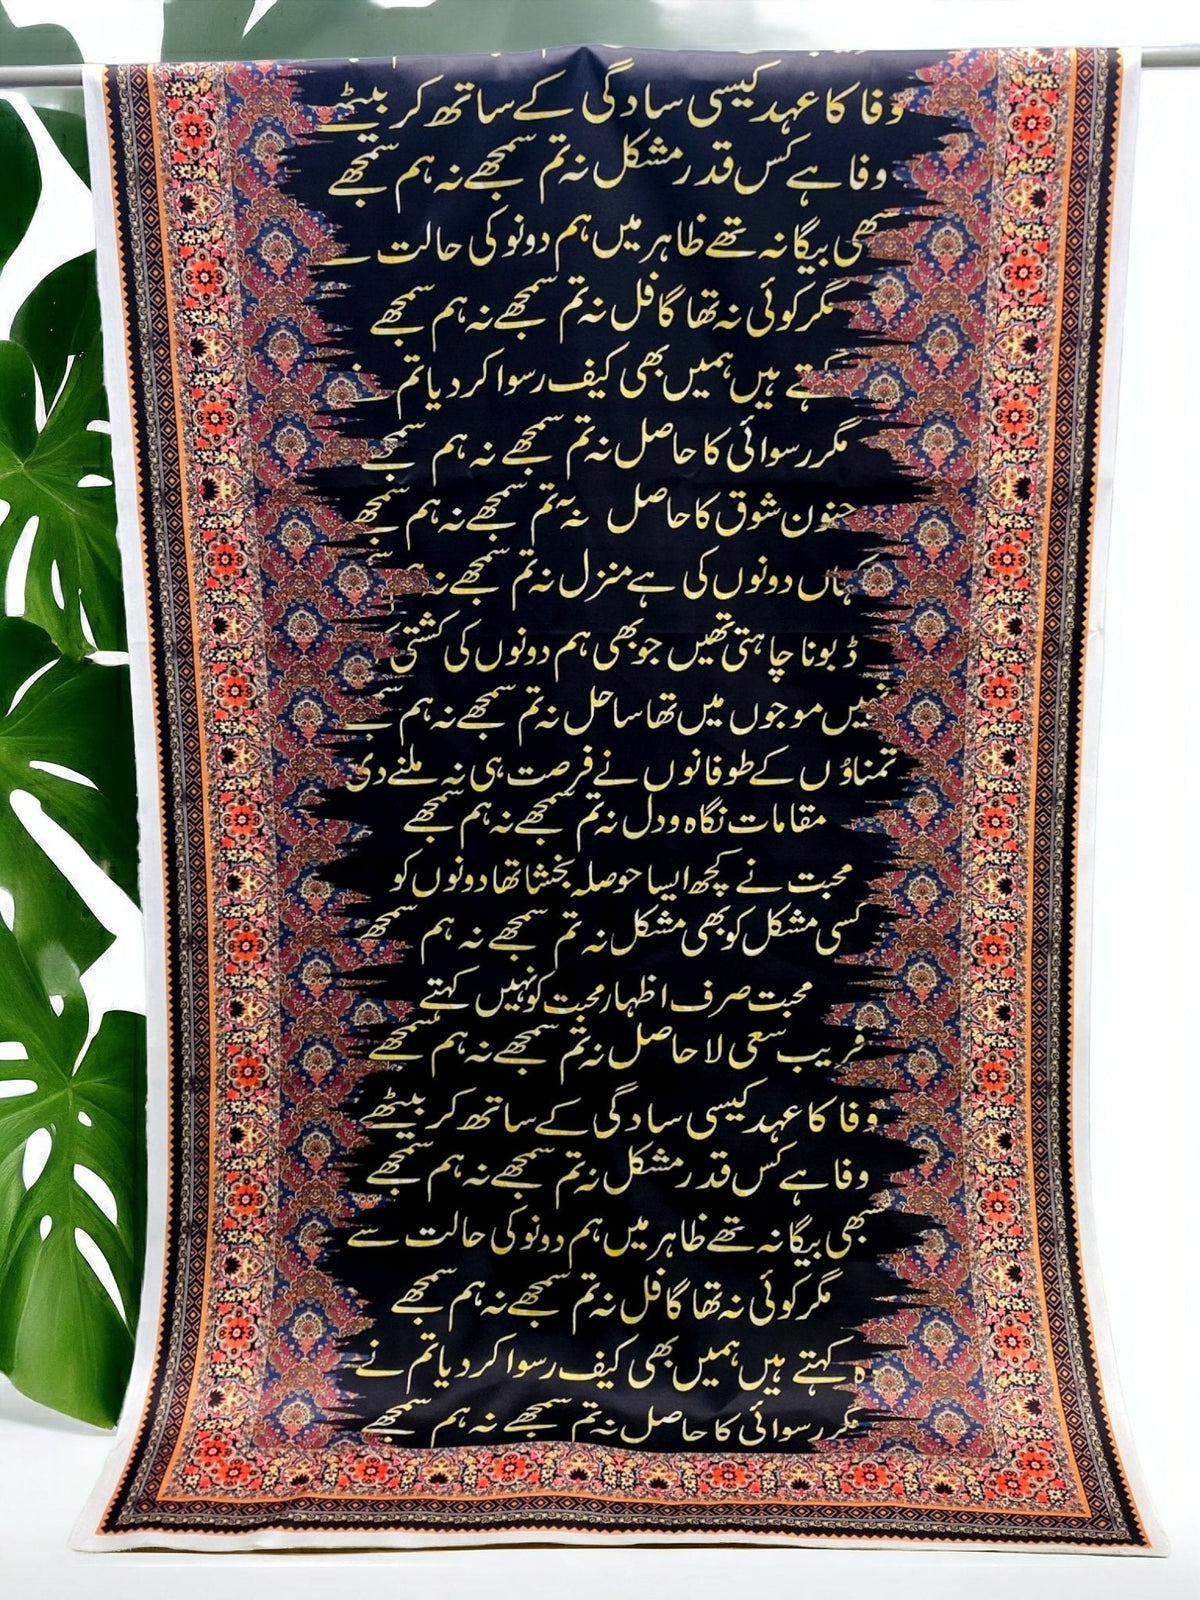 وفا کا عہد کیسی سادگی کے ساتھ کر بیٹھے
وفا ہے کس قدر مشکل نہ تم سمجھے نہ ہم سمجھے
سبھی بیگانہ تھے ظاہر میں ہم دونو کی حالت
مگر کوئی نہ تھا گافل نہ تم سمجھے نہ ہم سمجھے
کہتے ہیں ہمیں بھی کیف رسوا کر دیا تم
مگر رسوائی کا حاصل نہ تم سمجھے نہ ہم سمجھے
جنون شوق کا حاصل نہ تم سمجھے نہ ہم سمجھے
کہاں دونوں کی ہے منزل نہ تم سمجھے نہ ہم
ڈبونا چاہتی تھیں جو بھی ہم دونوں کی کشتی
انہیں موجوں میں تھا ساحل نہ تم سمجھے نہ ہم
تمناؤں کے طوفانوں نے فرصت ہی نہ ملنے دی
مقامات نگاہ و دل نہ تم سمجھے نہ ہم سمجھے
محبت نے کچھ ایسا حوصلہ بخشا تھا دونوں کو
کسی مشکل کو بھی مشکل نہ تم سمجھے نہ ہم سمجھے
محبت صرف اظہار محبت کو نہیں کہتے
فریب سعی لا حاصل نہ تم سمجھے نہ ہم سمجھے
وفا کا عہد کیسی سادگی کے ساتھ کر بیٹھے
وفا ہے کس قدر مشکل نہ تم سمجھے نہ ہم سمجھے
سبھی بیگانہ تھے ظاہر میں ہم دونو کی حالت سے
مگر کوئی نہ تھا گافل نہ تم سمجھے نہ ہم سمجھے
وہ کہتے ہیں ہمیں بھی کیف رسوا کر دیا تم نے
مگر رسوائی کا حاصل نہ تم سمجھے نہ ہم سمجھے